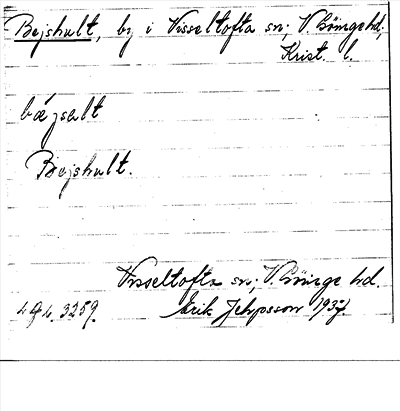 Bejshult, by i Visseltofta sn; V. Göinge hd,
Krist. l.
bæjselt
Bejshult.
Visseltofta sn; V. Göinge hd.
3259. Erik Jeppsson 1937